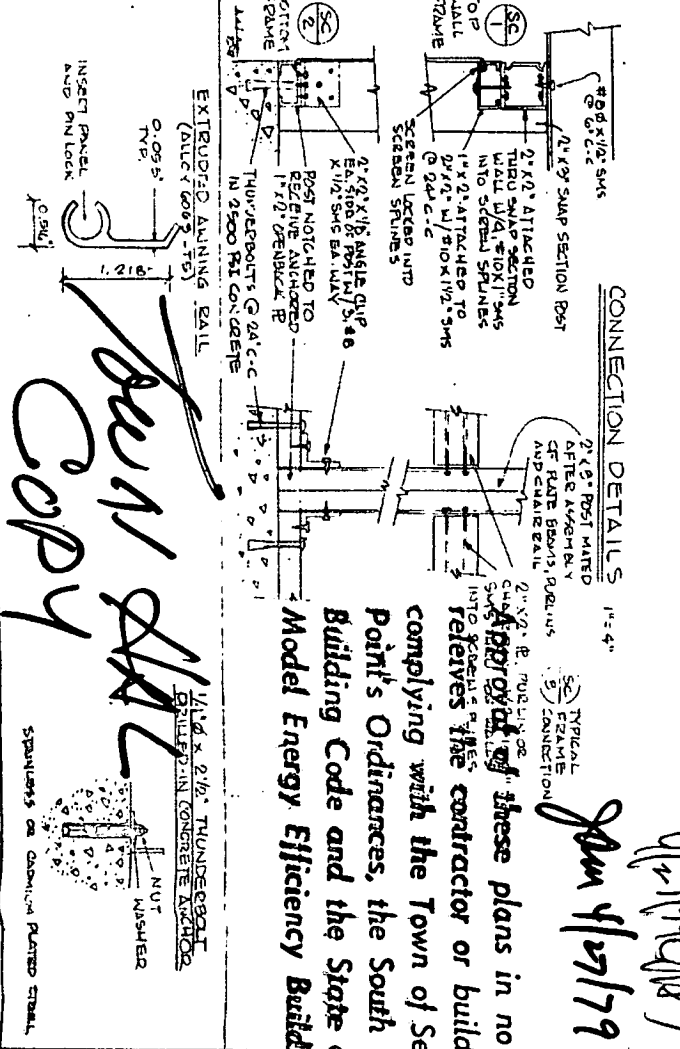 CONNECTION DETAILS 1"=4"
#8Ø x 1/2" SMS
@ 6" C-C
2" x 9" SNAP SECTION POST
SC
1
TOP
WALL
FRAME
2" x 2" ATTACHED
THRU SNAP SECTION
WALL W/ #10 x 1" SMS
INTO SCREEN SPLINES
1" x 2" ATTACHED TO
2" x 2" W/ #10 x 1 1/2" SMS
@ 24" C-C
SCREEN LOCKED INTO
SCREEN SPLINES
SC
2
BOTTOM
FRAME
2" x 2" x 1/8" ANGLE CLIP
EA. SIDE OF POST W/ 3, #8
x 1/2" SMS EA. WAY
POST NOTCHED TO
RECEIVE ANCHORED
1" x 2" OPENBACK PL
THUNDERBOLTS @ 24" C-C
IN 2500 PSI CONCRETE
POST MATED
AFTER ASSEMBLY
OF PLATE BEAMS, PURLINS
AND CHAIR RAIL
2" x 2" PL. PURLIN OR
INTO SCREEN SPLINES
TYPICAL
FRAME
CONNECTION
EXTRUDED AWNING RAIL
(ALLOY 6063 - T5)
0.055"
TYP.
INSECT PANEL
AND PIN LOCK
1.218"
Town Hall
Copy
1/4" Ø x 2 1/2" THUNDERBOLT
DRILLED-IN CONCRETE ANCHOR
NUT
WASHER
STAINLESS OR CADMIUM PLATED STEEL
Approval of these plans in no
releives the contractor or builde
complying with the Town of Se
Point's Ordinances, the South
Building Code and the State o
Model Energy Efficiency Buildi
4/27/79